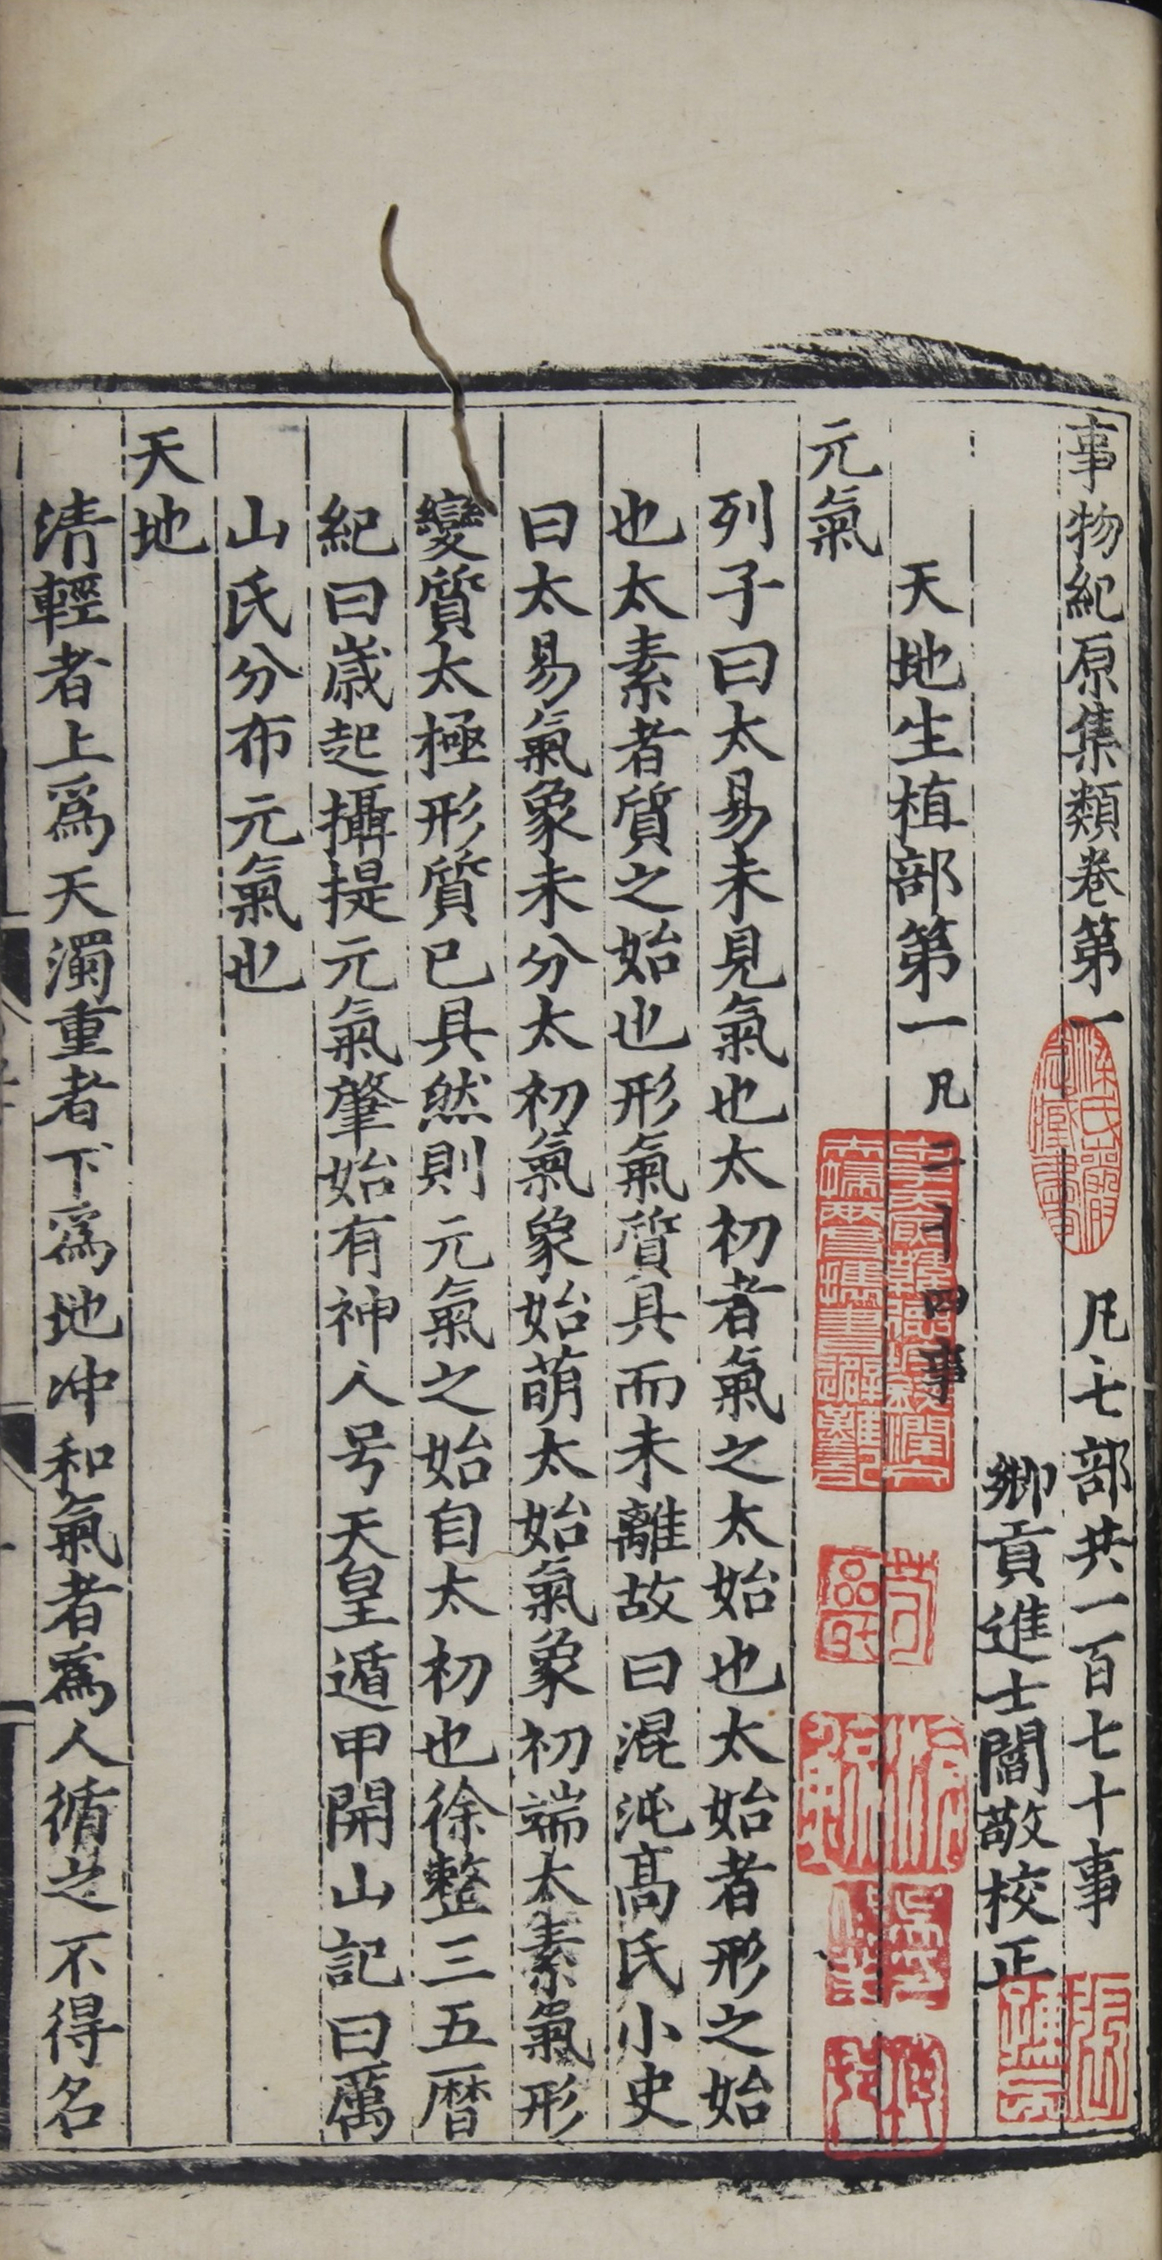 事物紀原集類卷第一　凡七部共一百七十事
鄉貢進士閻敬校正
天地生植部第一凡二十四事
元氣
列子曰太易未見氣也太初者氣之太始也太始者形之始
也太素者質之始也形氣質具而未離故曰混沌髙氏小史
曰太易氣象未分太初氣象始萌太始氣象初端太素氣形
變質太極形質已具然則元氣之始自太初也徐整三五曆
紀曰歲起攝提元氣肇始有神人号天皇遁甲開山記曰厲
山氏分布元氣也
天地
清輕者上爲天濁重者下爲地冲和氣者爲人循之不得名